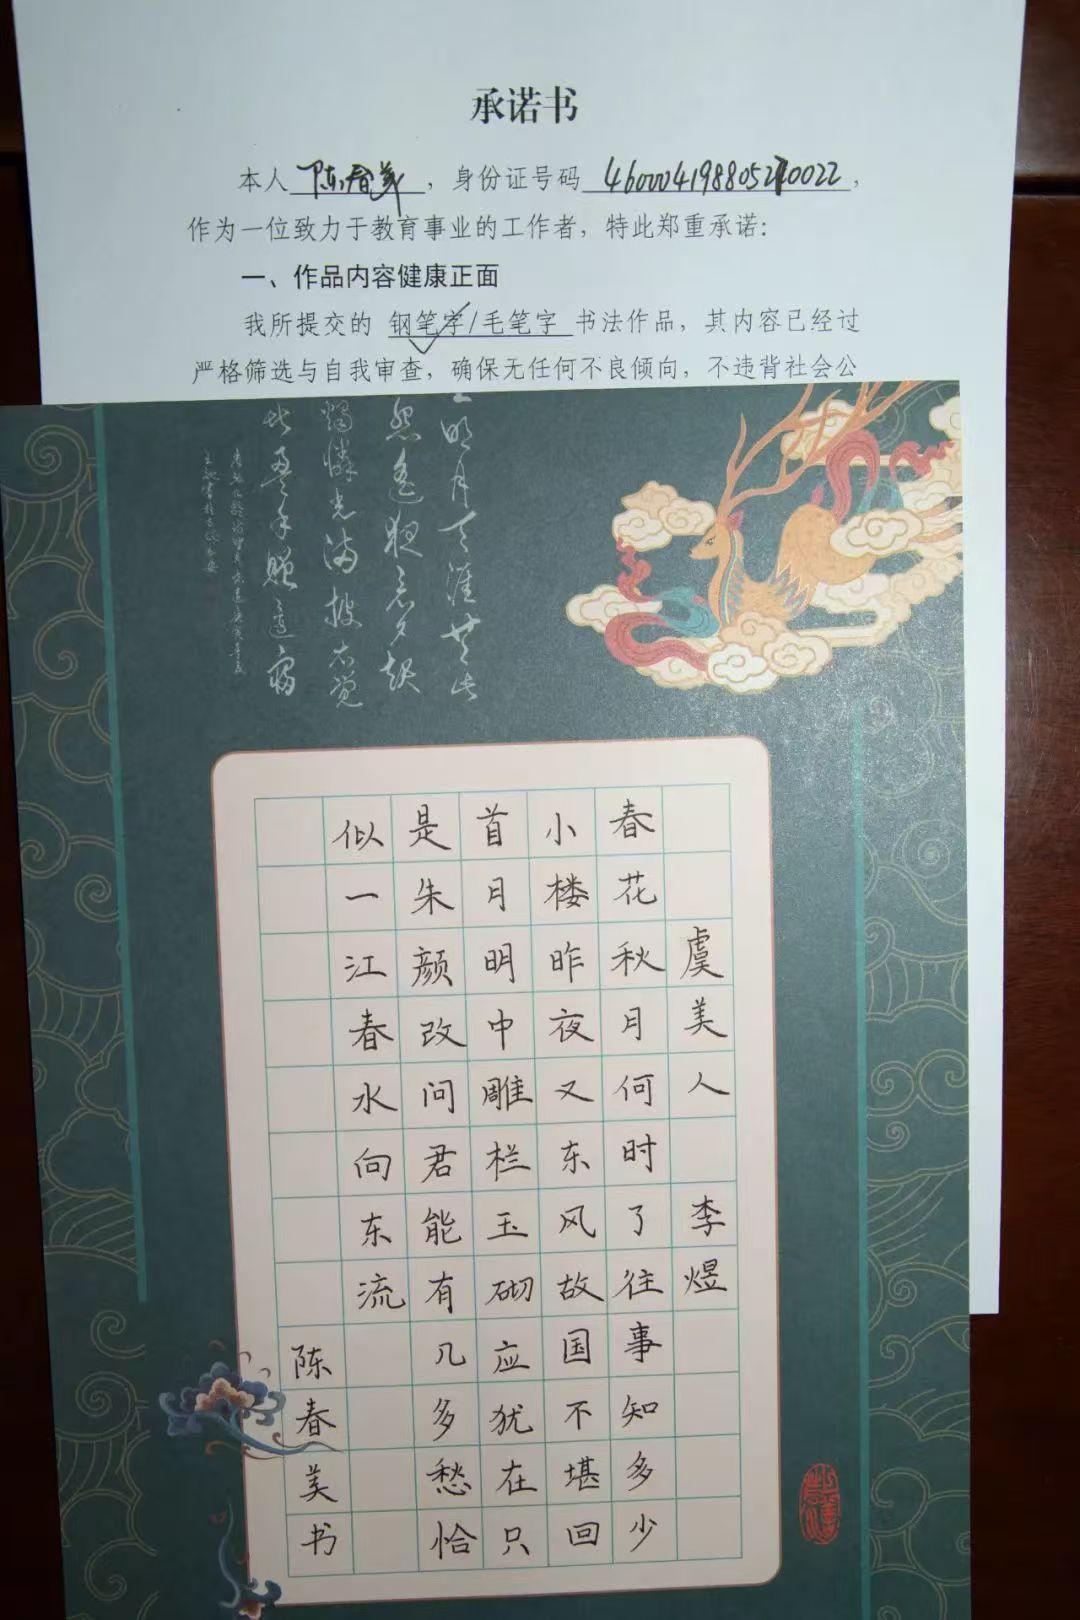 承诺书
本人陈春美，身份证号码460004198805210022，
作为一位致力于教育事业的工作者，特此郑重承诺：
一、作品内容健康正面
我所提交的 钢笔字/毛笔字 书法作品，其内容已经过
严格筛选与自我审查，确保无任何不良倾向，不违背社会公
明月天涯共此
怨遥夜意夕起
烛怜光满披不觉
此盈手赠还寝
虞美人 李煜
春花秋月何时了往事知多少
小楼昨夜又东风故国不堪回
首月明中雕栏玉砌应犹在只
是朱颜改问君能有几多愁恰
似一江春水向东流
陈春美书